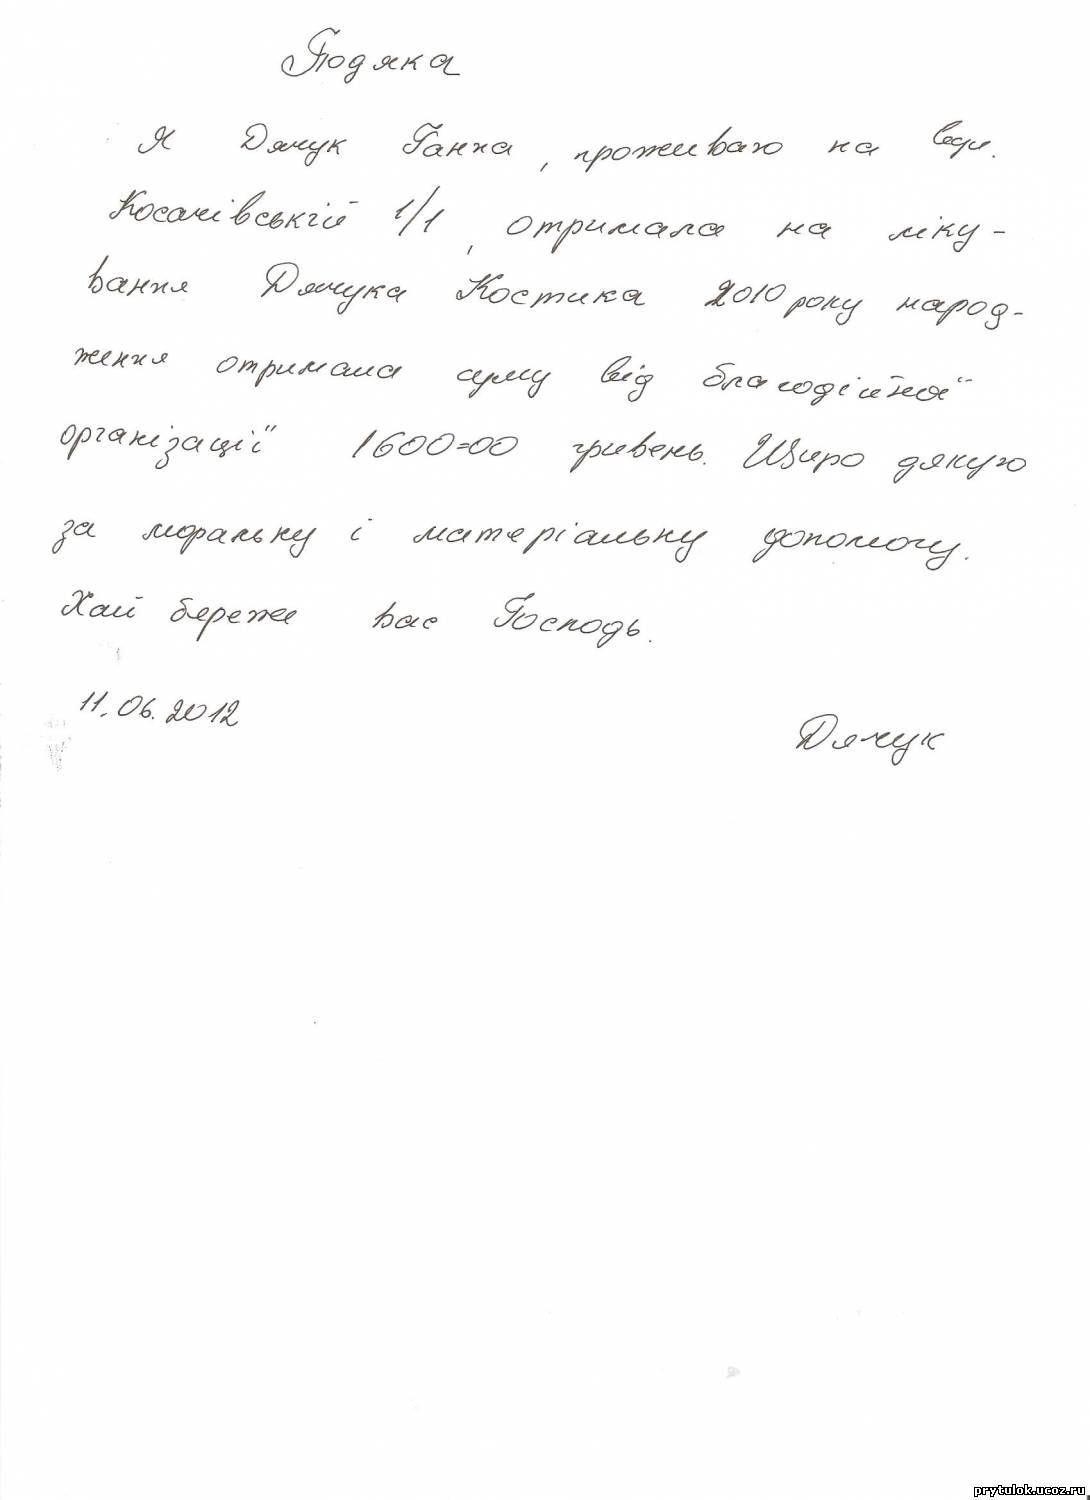 Подяка
Я Дячук Ганна, проживаю на вул.
Косачівській 1/1, отримала на ліку-
вання Дячука Костика 2010 року народ-
ження отримала суму від благодійної
організації 1600=00 гривень. Щиро дякую
за моральну і матеріальну допомогу.
Хай береже вас Господь.
11.06.2012
Дячук
prytulok.ucoz.ru